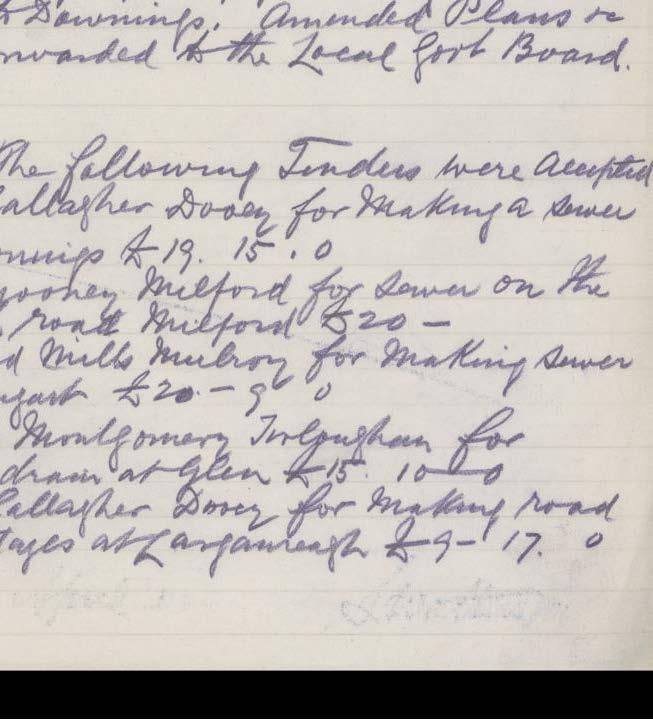 Downings. Amended Plans
to the Local Govt Board.
The following Tenders were Accepted
Gallagher Dooey for Making a Sewer
£19. 15. 0
Milford for Sewer on the
road Milford £20 —
Mills Mulroy for Making Sewer
£20 - 9 0
Montgomery for
drain at Glen £15. 10 — 0
Gallagher Dooey for Making road
at Larganreagh £9 - 17. 0